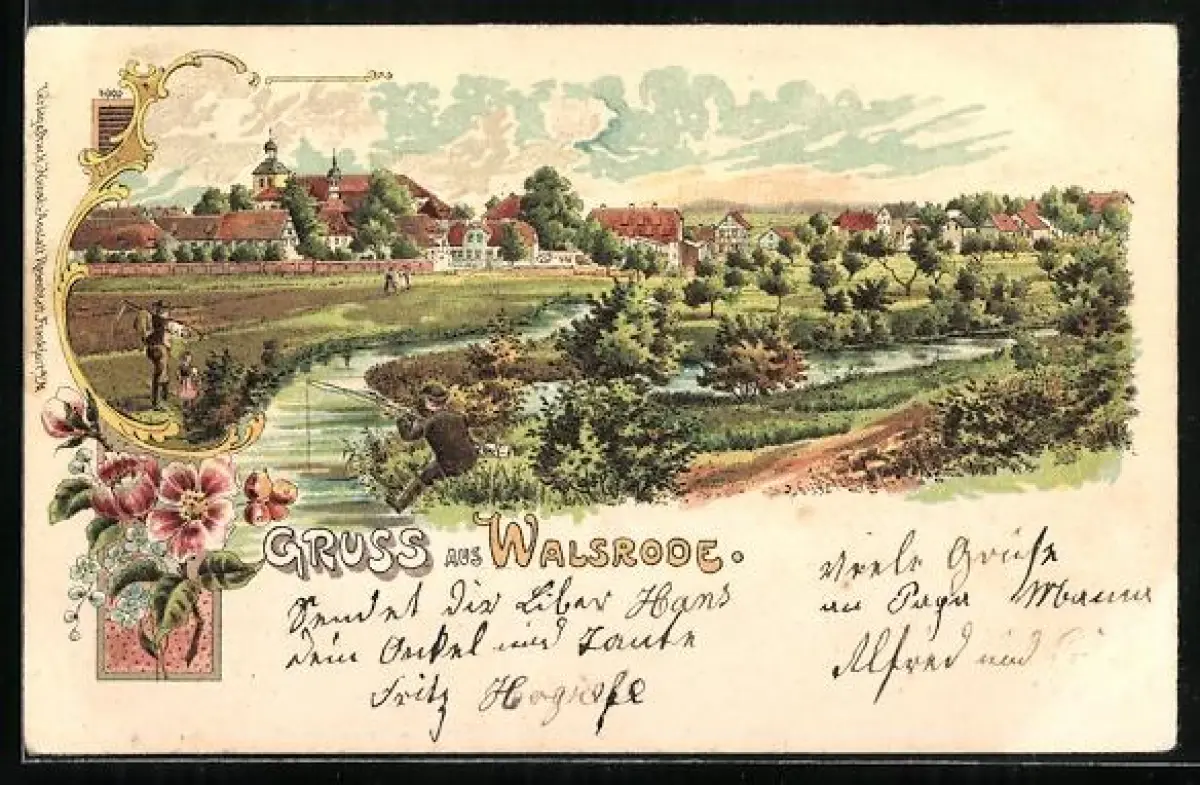 GRUSS AUS WALSRODE.
Sendet dir Liber Hans
dein Onkel und Tante
Fritz
viele Grüße
an Papa Mama
Alfred und